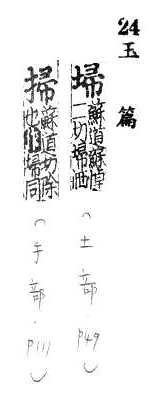 24 玉篇
埽蘇道蘇悼二切埽洒(土部 p49)
掃蘇道切除也埽同(手部 p111)